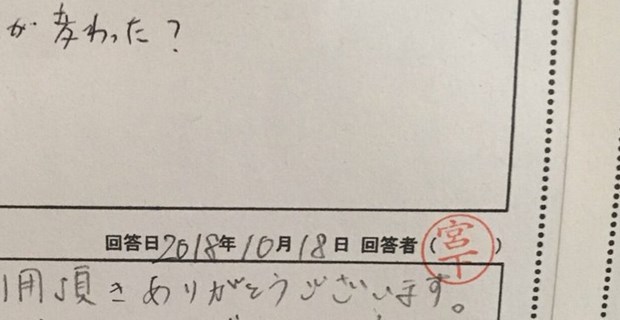 が変わった？
回答日2018年10月18日 回答者（宮下）
用頂きありがとうございます。